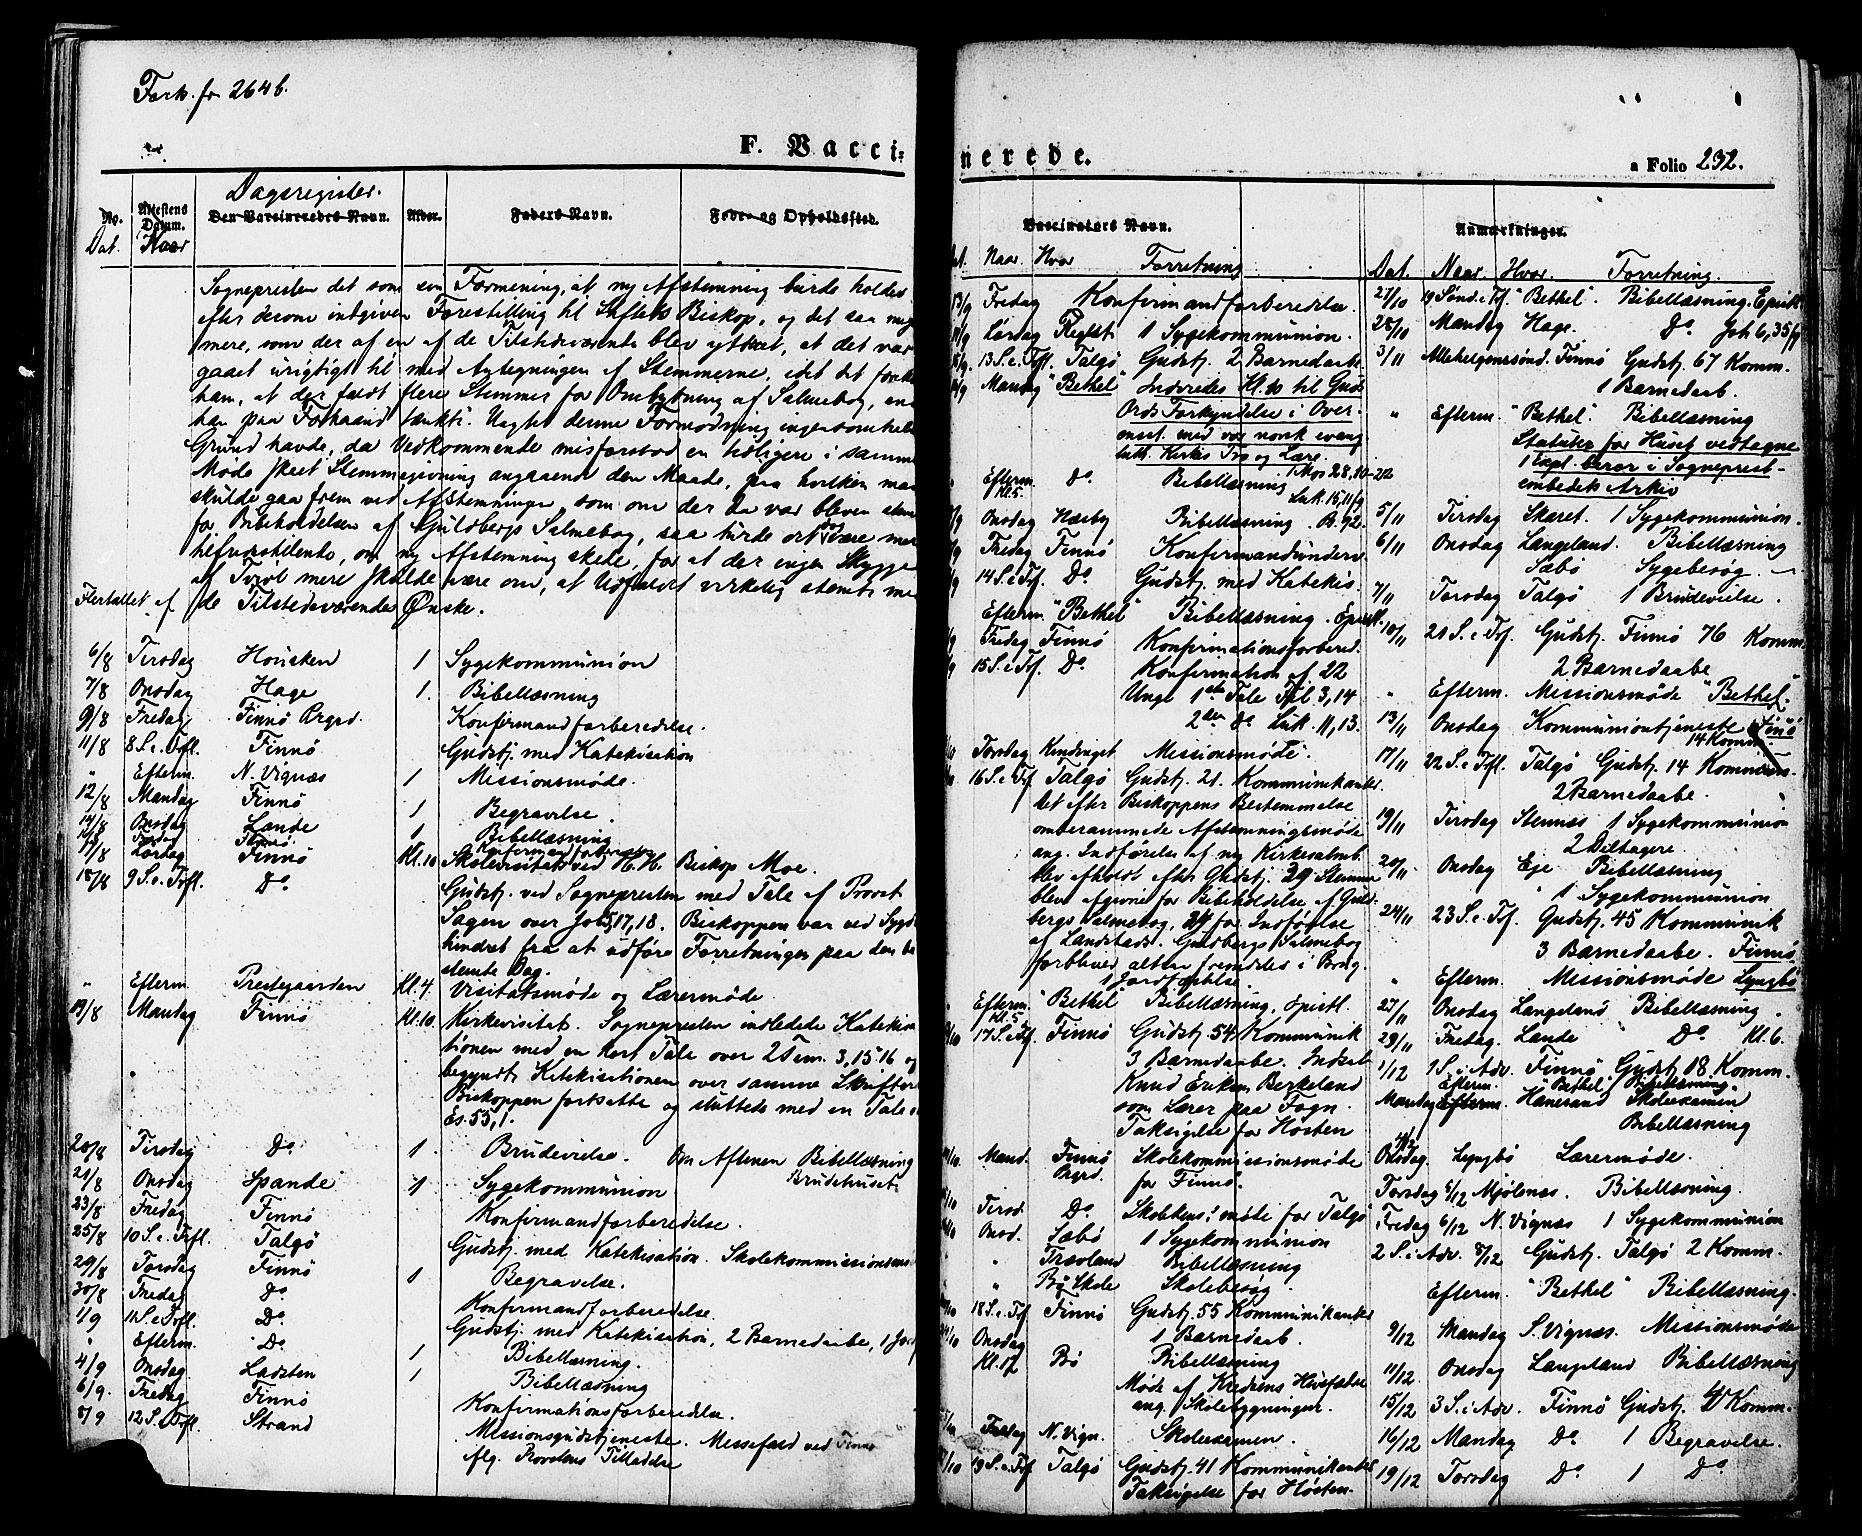 Forts. fr 264 b.
F. Vacci-
Dagsregister.
No. Attestens Datum. Den Vaccineredes Navn. Alder. Faders Navn. Føde- og Opholdssted.
Dat. Naar
Sognepresten det som sin Formening, at ny Afstemning burde holdes
efter derom indgiven Forestilling til Stiftets Biskop, og det saa meget
mere, som der af en af de Tilstedeværende blev yttret, at det var
gaaet urigtigt til med Antegningen af Stemmerne, idet det forekom
ham, at der faldt flere Stemmer for Ombytning af Salmebog, end
han paa Forhaand tænkte. Uagtet denne Formodning ingensomhelst
Grund havde, da Vedkommende misforstod en tidligere i samme
Møde skeet Stemmegivning angaaende den Maade, paa hvilken man
skulde gaa frem ved Afstemningen, som om der da var bleven stemt
for Bibeholdelsen af Guldbergs Salmebog, saa turde det dog være mere
tilfredsstillende, om ny Afstemning skede, for at der ingen Skygge
af Tvivl mere skulde være om, at Udfaldet virkelig stemte med
Flertallet af de Tilstedeværendes Ønske.
6/8 Tirsdag Housken 1 Sygekommunion
7/8 Onsdag Hage 1. Bibellæsning
9/8 Fredag Finnø Prgrd. Konfirmandforberedelse.
11/8 8 S. e. Trfl. Finnø Gudstj. med Katekisation
" Efterm. N. Vignæs 1 Missionsmøde.
12/8 Mandag Finnø 1 Begravelse.
14/8 Onsdag Lande 1 Bibellæsning
Fredag Finnø Konfirmandforberedelse
17/8 Lørdag Finnø Kl. 10 Skolevisitats ved H. H. Biskop Moe.
18/8 9 S. e. Trfl. Do Gudstj. ved Sognepresten med Tale af Provst
Sagen over Joh 5, 17, 18. Biskoppen var ved Sygd.
hindret fra at udføre Forretningen paa den be-
stemte Dag.
" Efterm. Prestegaarden Kl. 4. Visitatsmøde og Lærermøde.
19/8 Mandag Finnø Kl. 10. Kirkevisitat. Sognepresten indledede Katekisa-
tionen med en kort Tale over 2 Tim. 3, 15. 16 og
begyndte Katekisationen over samme Skriftord
Biskoppen fortsatte og sluttede med en Tale o.
Es. 55, 1.
20/8 Tirsdag Do 1. Brudevielse. Om Aftenen Bibellæsning
Brudehuset.
21/8 Onsdag Spande 1 Sygekommunion
23/8 Fredag Finnø Konfirmandforberedelse.
25/8 10 S. e. Trfl. Talgø Gudstj. med Katekisation. Skolekommissionsmøde
29/8 Torsdag Finnø 1 Begravelse.
30/8 Fredag Do Konfirmandforberedelse.
1/9 11 S. e. Trfl. Do. Gudstj. med Katekisation, 2 Barnedaabe, 1 Jordf
" Efterm. Do. 1 Bibellæsning.
4/9 Onsdag Ladsten 1 Bibellæsning
6/9. Fredag Finnø Konfirmationsforberedelse.
8/9 12 S. e. Trfl. Strand Missionsgudstjeneste. Messefald ved Finnø
flg. Provstens Tilladelse
nerede.
a Folio 232.
Vaccinators Navn. Anmærkninger.
Dat. Naar. Hvor Forretning
13/9 Fredag Konfirmandforberedelse.
14/9 Lørdag 1 Sygekommunion.
15/9. 13 S. e. Trfl. Talgø Gudstj. 2 Barnedaabe
16/9 Mandag "Bethel" Indviedes Kl. 10 til Guds
Ords Forkyndelse i Over-
enst. med vor norsk evang
luth. Kirkes Tro og Lære.
Efterm. Kl. 5. Do. Bibellæsning 1 Mos 28, 10-22
Luk. 15, 11 fg
Onsdag Nærby Bibellæsning. B. 92.
Fredag Finnø Konfirmandunderv.
14 S. e. Trf. Do Gudstj. med Katekis.
Efterm. "Bethel" Bibellæsning. Epistl.
Fredag Finnø Konfirmationsforbered.
15 S. e. Trf. Do. Konfirmation af 22
Unge 1ste Tale Fil. 3, 14
2den do Luk. 11, 13.
Torsdag Kindinget Missionsmøde.
16 S. e. Trf. Talgø Gudstj. 21. Kommunikanter
Det efter Biskoppens Bestemmelse
omberammede Afstemningsmøde
ang. Indførelse af ny Kirkesalmb.
blev afholdt efter Gudstj. 29 Stemmer
bleve afgivne for Bibeholdelse af Guld-
bergs Salmebog, 24 for Indførelse
af Landstads. Guldbergs Salmebog
forbliver altsaa fremdeles i Brug.
1 Jordfæstelse.
Efterm. Kl. 5 "Bethel" Bibellæsning, Epistl.
17 S. e. Trf. Finnø Gudstj. 54 Kommunik
3 Barnedaabe. Indsat
Knud Eriksen Berkeland
som Lærer paa Fogn.
Taksigelse for Høsten
Mand. Finnø Prgrd. Skolekommissionsmøde
for Finnø.
Tirsd. Do. Skolekms: møde for Talgø
Onsd. Sæbø 1 Sygekommunion
" Træoland Bibellæsning
" Bø Skole Skolebesøg.
18 S. e. Trf Finnø Gudstj. 55 Kommunikanter
1 Barnedaab.
Onsdag Kl. 17 Bø Bibellæsning
Møde af Kredsens Huusfædre
ang. Skolebygningen.
Fredag N. Vign. Skoleexamen.
19 S. e. Trf Talgø Gudstj. 41 Kommunikanter
Taksigelse for Høsten.
Dat. Naar. Hvor. Forretning.
27/10 19 Sønd. e. Trf. "Bethel". Bibellæsning. Epistl.
28/10 Mandag Hage. Do. Joh 6, 35 fg
3/11 Allehelgenssønd. Finnø Gudstj. 67 Komm.
1 Barnedaab.
" Efterm. "Bethel" Bibellæsning
Statuter for Huset vedtagne
1 Expl. beror i Sogneprest-
embedets Arkiv
5/11 Tirsdag Skaret. 1 Sygekommunion.
6/11 Onsdag Langeland. Bibellæsning
Sæbø Sygebesøg.
7/11 Torsdag Talgø 1 Brudevielse.
10/11 21 S. e. Trf. Gudstj. Finnø 76 Komm.
2 Barnedaabe
" Efterm. Missionsmøde "Bethel".
13/11 Onsdag Kommuniontjeneste Finnø
14 Komm.
17/11 22 S. e. Trfl. Talgø Gudstj. 14 Kommun.
2 Barnedaabe.
19/11 Tirsdag Stennæs 1 Sygekommunion
2 Deltagere.
20/11 Onsdag Eje Bibellæsning
1 Sygekommunion
24/11 23 S. e. Trf. Gudstj. 45 Kommunik
3 Barnedaabe. Finnø
" Efterm. Missionsmøde Lyngbø
27/11 Onsdag Langeland Bibellæsning.
29/11 Fredag. Lande Do Kl. 6.
1/12 1 S. i Adv. Finnø Gudstj 18 Komm.
Efterm. "Bethel" Bibellæsning.
Mandag Efterm. Hanesand Skoleexamen
Bibellæsning
4/12 Onsdag. Lyngbø Lærermøde.
Torsdag 5/12 Mjølsnæs. Bibellæsning.
Fredag 6/12 N. Vignæs 1 Sygekommunion
2 S. i Adv. 8/12 Gudstj. Talgø 2 Komm.
Efterm. "Bethel" Bibellæsning.
9/12 Mandag S. Vignæs. Missionsmøde
11/12 Onsdag Langeland Bibellæsning
15/12 3 S. i Adv. Finnø Gudstj. Komm.
16/12 Mandag Do 1 Begravelse.
19/12 Torsdag Do 1 Do